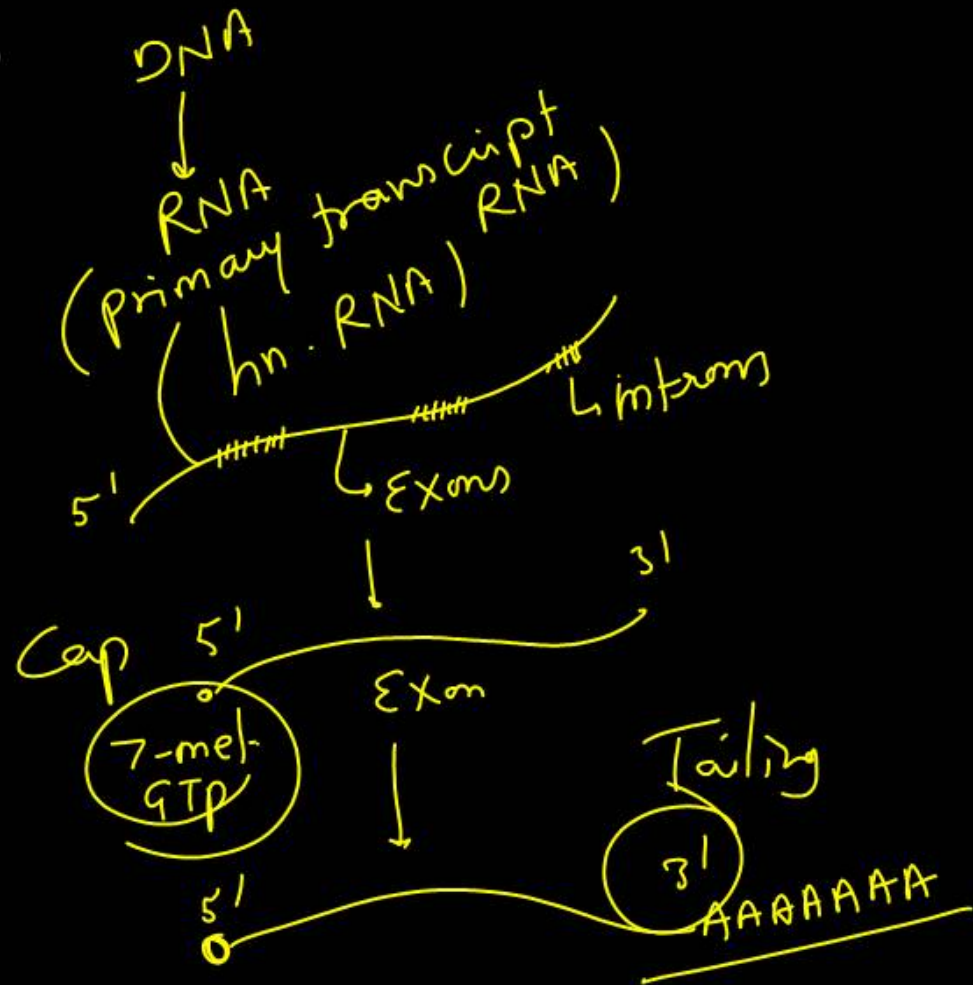 DNA
RNA
(primary transcript
RNA)
hn. RNA)
introns
5'
Exons
3'
Cap 5'
Exon
7-mel-
GTP
Tailing
3'
5'
AAAAAAA